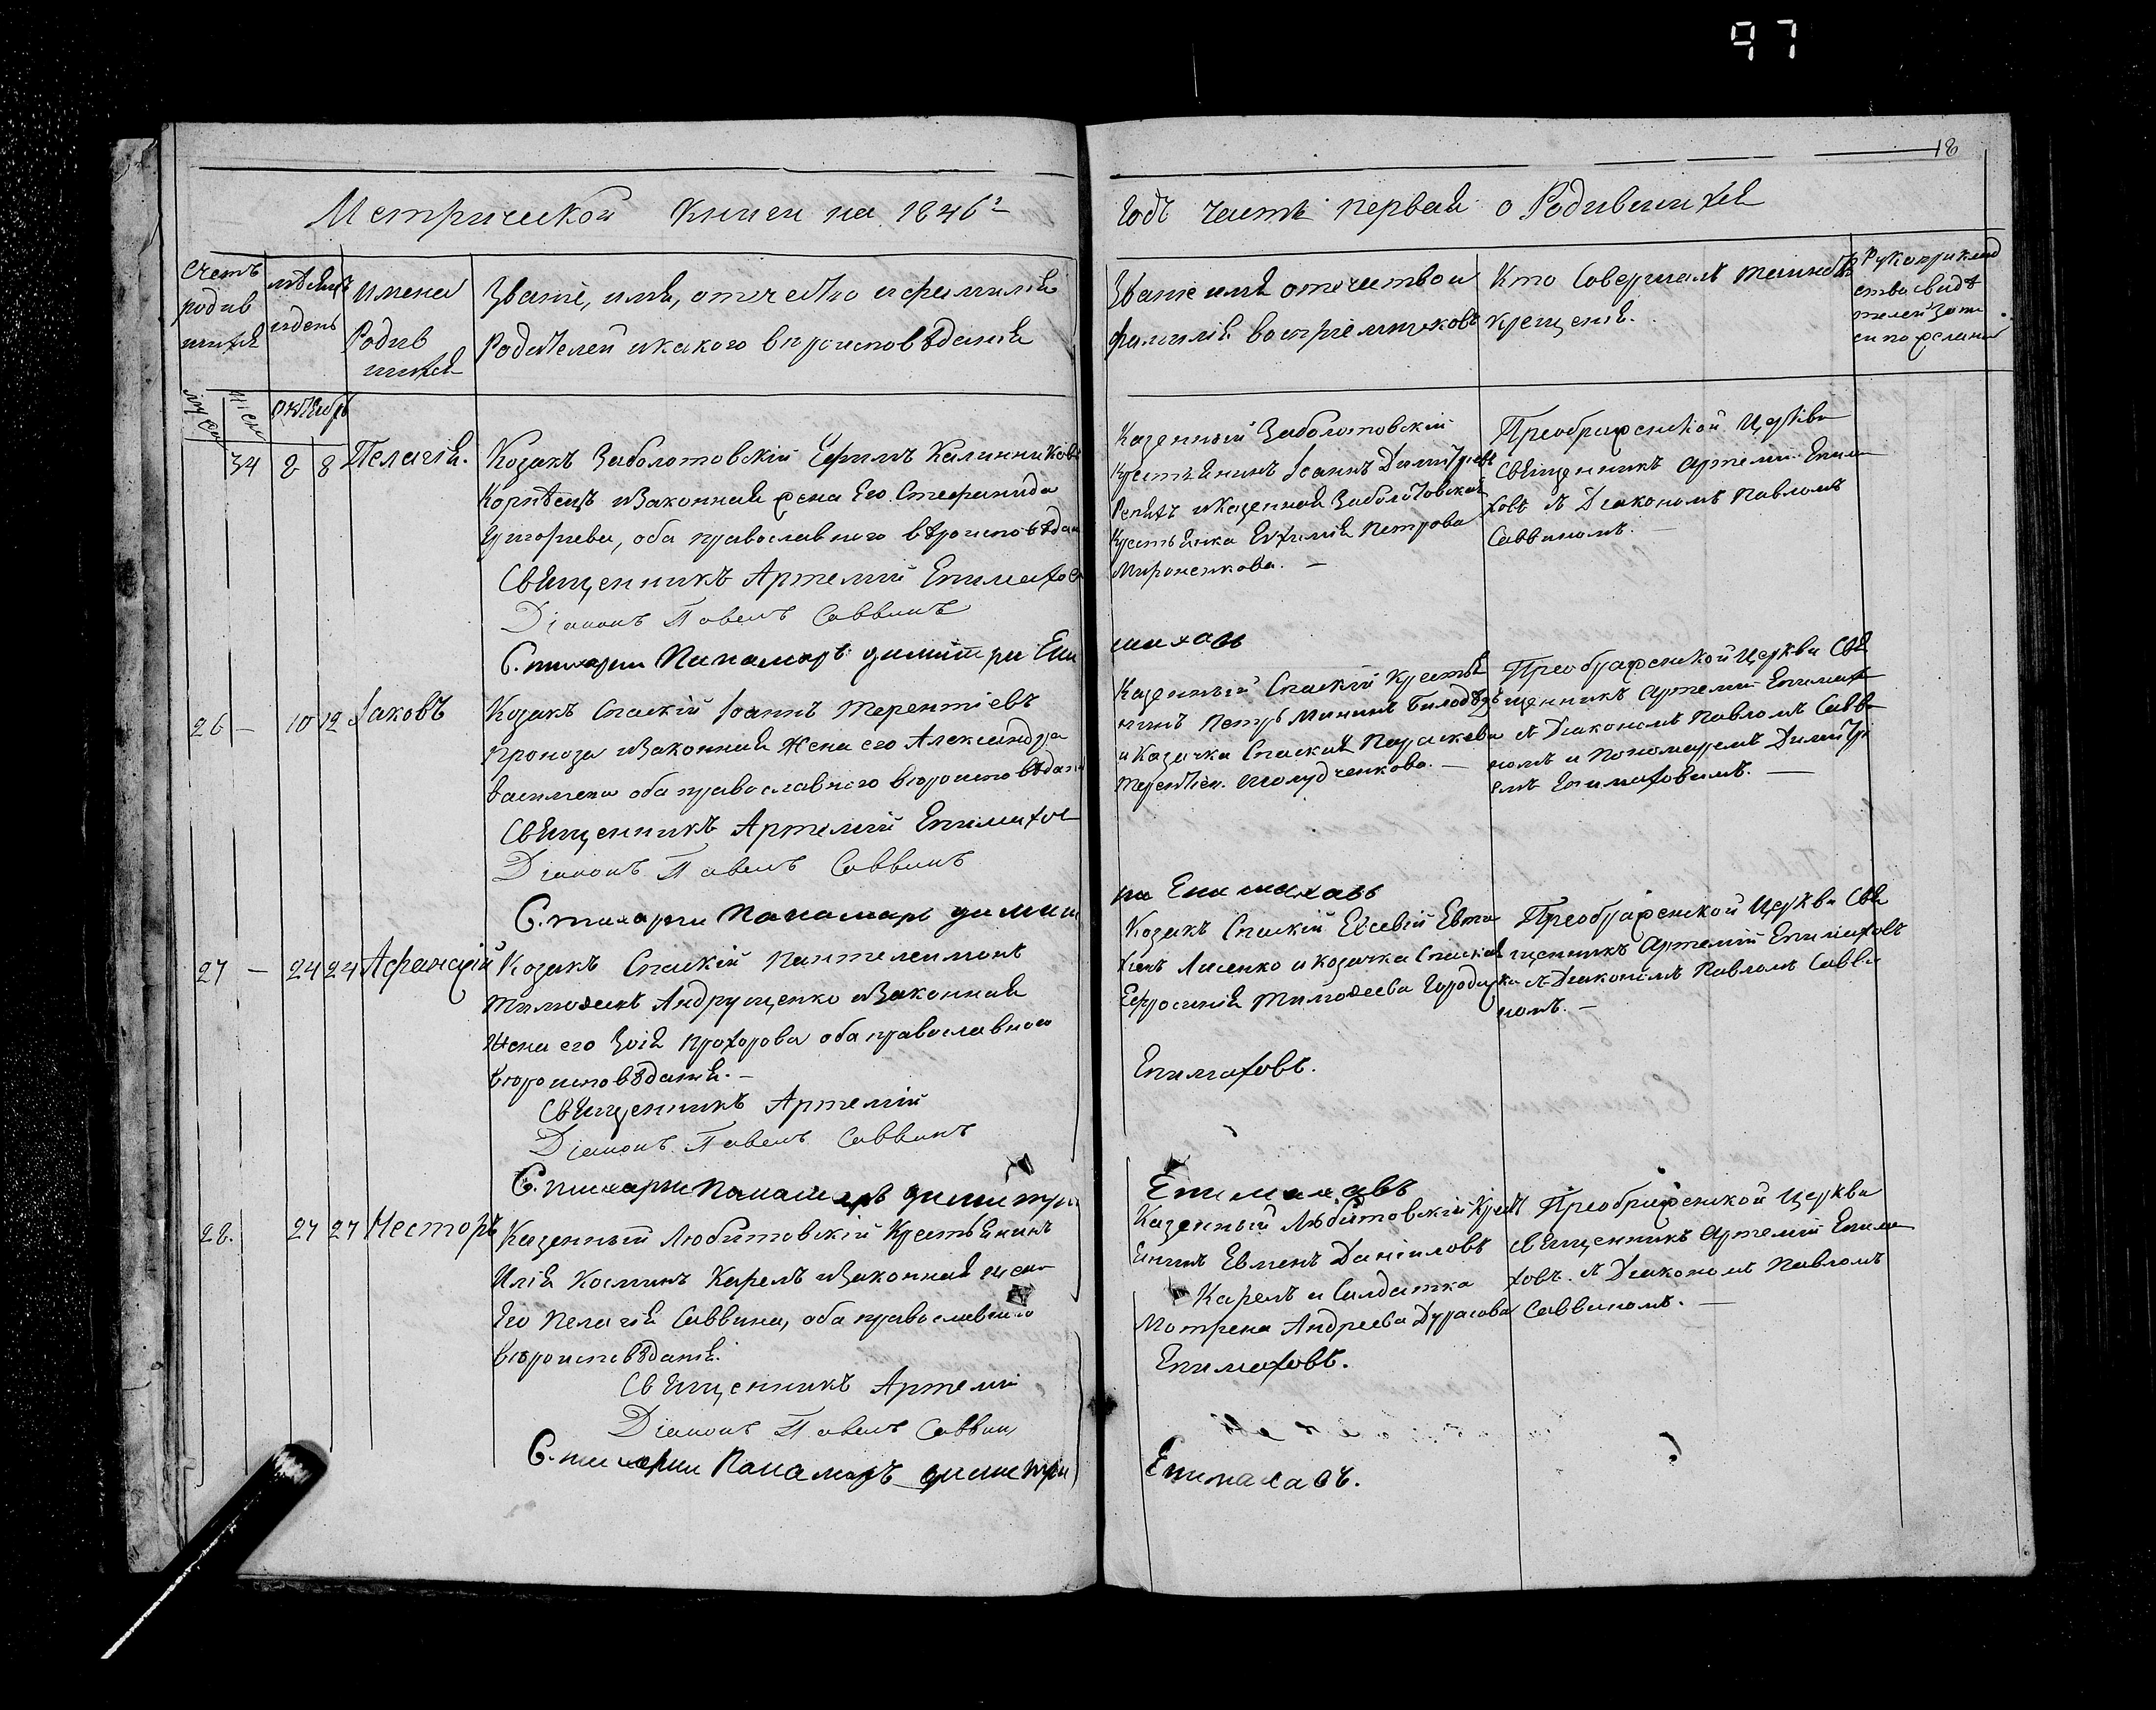 97
18
Метрической Книги на 1846 г.
Годъ часть первая о Родившихся
Счетъ родив шихся
мѣсяцъ и день
Имена Родив шихся
Званіе, имя, отчество и фамилія
Родителей и какого вѣроисповѣданія
Званіе имя отечество и
фамилія воспріемниковъ
Кто Совершалъ таинство
крещенія.
Рукоприклад
ство свидѣ
телей запи
си по желанію
Октябрь
34 8 8 Пелагія.
Козакъ Заболотовскій Ефимъ Калинниковъ
Корнѣецъ и Законная жена Его Стефанида
Григорьева, оба православного вѣроисповѣдан
Священникъ Артемій Епимахов
Діаконъ Павелъ Саввинъ
С. тихарни Панамарь димитри Епи
Казенный Заболотовскій
Крестьянинъ Іоаннъ Димитріевъ
Репихъ и Казенная Заболотовская
Крестьянка Евфимія Петрова
Мироненкова.
махавъ
Преображенской Церкви
Священникъ Артемій Епима
ховъ съ Діакономъ Павломъ
Саввиномъ.
26 — 10 12 Іаковъ
Козакъ Спаскій Іоаннъ Терентіевъ
Проноза и Законная Жена его Александра
Василева оба православного вѣроисповѣдані
Священникъ Артемій Епимахов
Діаконъ Павелъ Саввинъ
С. тихарни Панамарь димит
Казенный Спаскій Крестья
нинъ Петръ Мининъ Билодѣдъ
и Казачка Спаская Параскева
Терентіев. Шолудченкова.
ри Епимахавъ
Преображенской Церкви Свя
щенникъ Артемій Епимахов
съ Діакономъ Павломъ Савви
номъ и Пономаремъ Димитрі
емъ Епимаховимъ.
27 — 24 24 Афанасій
Козакъ Спаскій Пантелеимонъ
Тимофеевъ Андрущенко и Законная
Жена его Зоія Прохорова оба православного
вѣроисповѣданія.
Священникъ Артемій
Діаконъ Павелъ Саввинъ
С. тихарни Панамарь димитри
Козакъ Спаскій Евсевій Евти
хіевъ Лисенко и козачка Спаская
Ефросинія Тимофеева Городецка
Епимаховъ.
Епимахавъ
Преображенской Церкви Свя
щенникъ Артемій Епимаховъ
съ Діакономъ Павломъ Савви
номъ.
28. 27 27 Несторъ
Казенный Любитовскій Крестьянинъ
Илія Косминъ Карепъ и Законная жена
Его Пелагія Саввина, оба православного
вѣроисповѣданія.
Священникъ Артемій
Діаконъ Павелъ Саввин
С. тихарни Панамарь димитри
Казенный Любитовскій Крест
янинъ Евменъ Даніиловъ
Карепъ и Салдатка
Мотрена Андреева Дурасова
Епимаховъ.
Епимахавъ.
Преображенской Церкви
Священникъ Артемій Епима
ховъ. съ Діакономъ Павломъ
Саввиномъ.